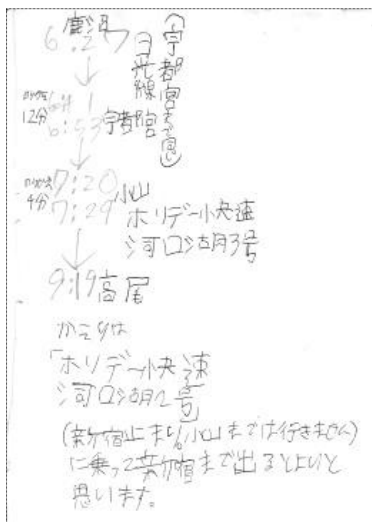 鹿沼
6:27
日光線
(宇都宮まで
のりかえ
12分
6:53 宇都宮
のりかえ 7:20 小山
9分 7:29
ホリデー快速
河口湖3号
9:19 高尾
かえりは
「ホリデー快速
河口湖2号」
(新宿止まり。小山までは行きません)
に乗って新宿まで出るとよいと
思います。